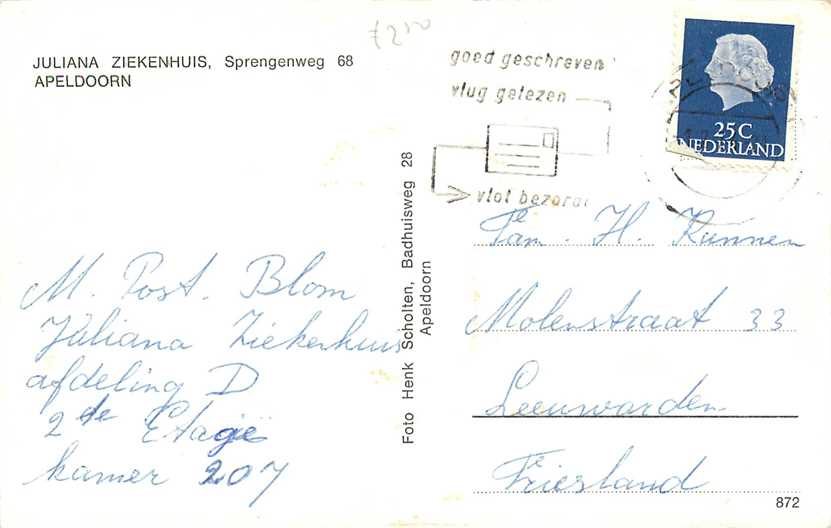 JULIANA ZIEKENHUIS, Sprengenweg 68
APELDOORN
£2.50
goed geschreven
vlug gelezen
vlot bezorgd
25C
NEDERLAND
M. Post. Blom
Juliana Ziekenhuis
afdeling D
2de Etage
kamer 207
Foto Henk Scholten, Badhuisweg 28
Apeldoorn
Fam. H. Kunnen
Molenstraat 33
Leeuwarden
Friesland
872